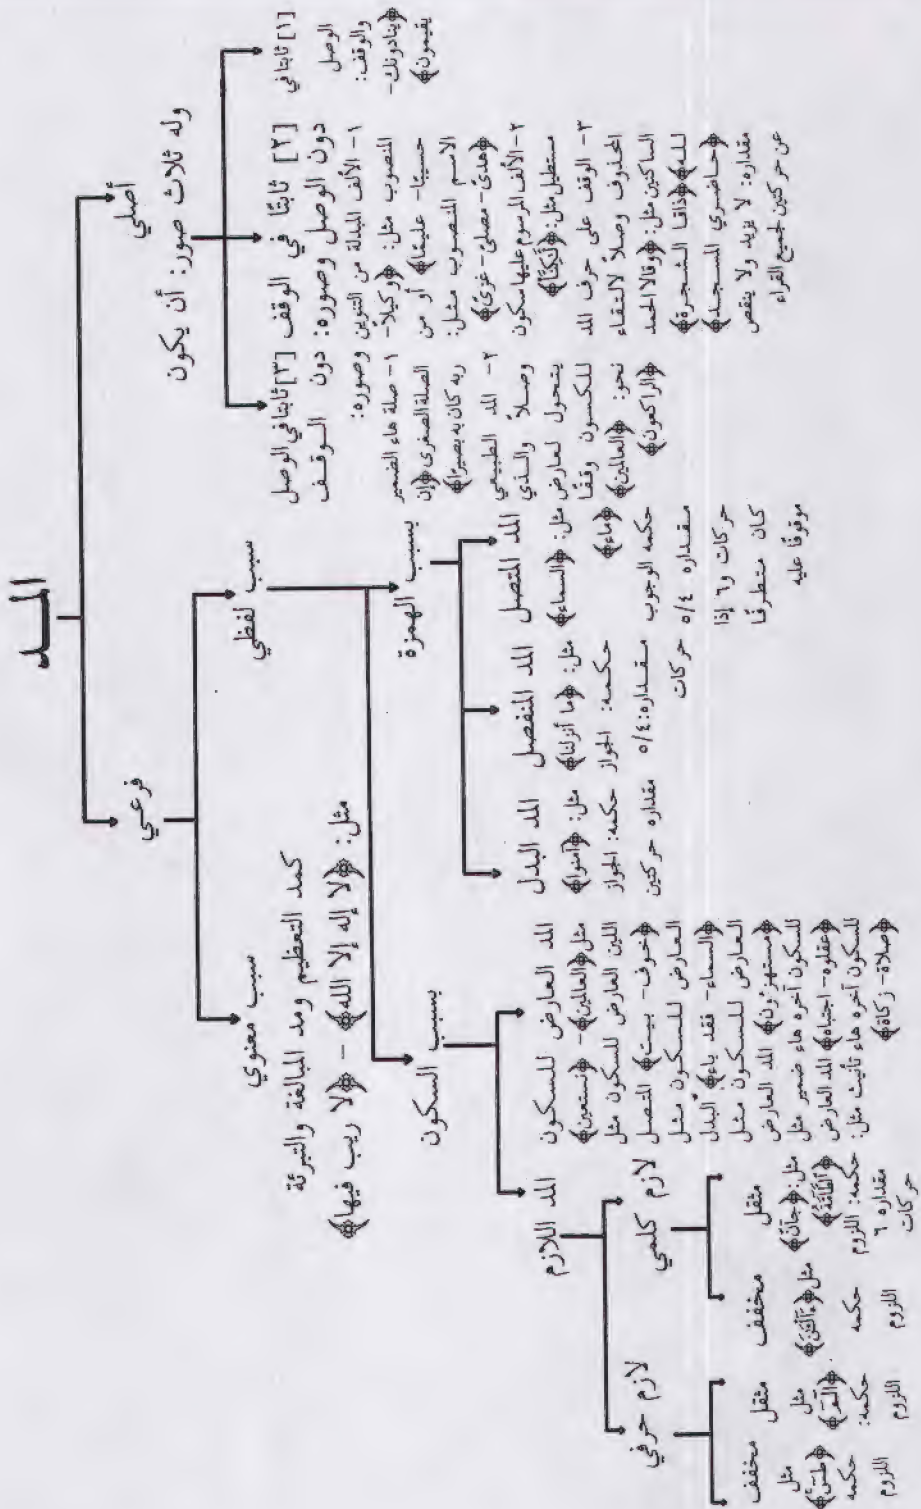 المــد
أصلي
وله ثلاث صور: أن يكون
[١] ثابتا في
الوصل
والوقف:
﴿ينادونك-
يقيمون﴾
[٢] ثابتًا في الوقف
دون الوصل وصوره:
١- الألف المبدلة من التنوين
المنصوب مثل: ﴿وكيلاً-
حسيبًا- عليمًا﴾ أو من
الاسم المنصوب مثل:
﴿هدىً- مصلىً- غزىً﴾
٢- الألف المرسوم عليها سكون
مستطيل مثل: ﴿لَّكِنَّا۠﴾
٣- الوقف على حرف المد
المحذوف وصلاً لالتقاء
الساكنين مثل: ﴿وقالا الحمد
لله﴾ ﴿ذاقا الشجرة﴾
﴿حاضري المسجد﴾
مقداره: لا يزيد ولا ينقص
عن حركتين لجميع القراء
[٣] ثابتا في الوصل
دون الوقف
وصوره:
١- صلة هاء الضمير
الصلة الصغرى ﴿إن
ربه كان به بصيرًا﴾
٢- المد الطبيعي
وصلاً والذي
يتحول لعارض
للكسون وقفًا
نحو: ﴿العالمين﴾
﴿الراكعون﴾
فرعي
سبب لفظي
بسبب الهمزة
المد المتصل
مثل: ﴿السماء﴾
﴿ماء﴾
حكمه الوجوب
مقداره ٥/٤
حركات و٦ إذا
كان متطرفًا
موقوفًا عليه
المد المنفصل
مثل: ﴿ما أنزلنا﴾
حكمه: الجواز
مقداره: ٥/٤
حركات
المد البدل
مثل: ﴿آمنوا﴾
حكمه: الجواز
مقداره حركتين
بسبب السكون
المد العارض للسكون
مثل ﴿العالمين﴾ - ﴿نستعين﴾
اللين العارض للسكون مثل
﴿خوف- بيت﴾ المتصل
العارض للسكون مثل
﴿السماء- فقد باء﴾ البدل
العارض للسكون مثل
﴿مستهزئون﴾ المد العارض
للسكون آخره هاء ضمير مثل
﴿عقلوه- اجتباه﴾ المد العارض
للسكون آخره هاء تأنيث مثل:
﴿صلاة- زكاة﴾
المد اللازم
لازم كلمي
مثقل
مثل: ﴿جآنّ﴾
﴿الطَّآمَّةُ﴾
حكمه: اللزوم
مقداره ٦
حركات
مخفف
مثل ﴿ءَآلْـَٰٔنَ﴾
حكمه
اللزوم
لازم حرفي
مثقل
مثل
﴿الٓمٓ﴾
حكمه:
اللزوم
مخفف
مثل
﴿طسٓ﴾
حكمه
اللزوم
سبب معنوي
كمد التعظيم ومد المبالغة والتبرئة
مثل: ﴿لا إله إلا الله﴾ - ﴿لا ريب فيها﴾